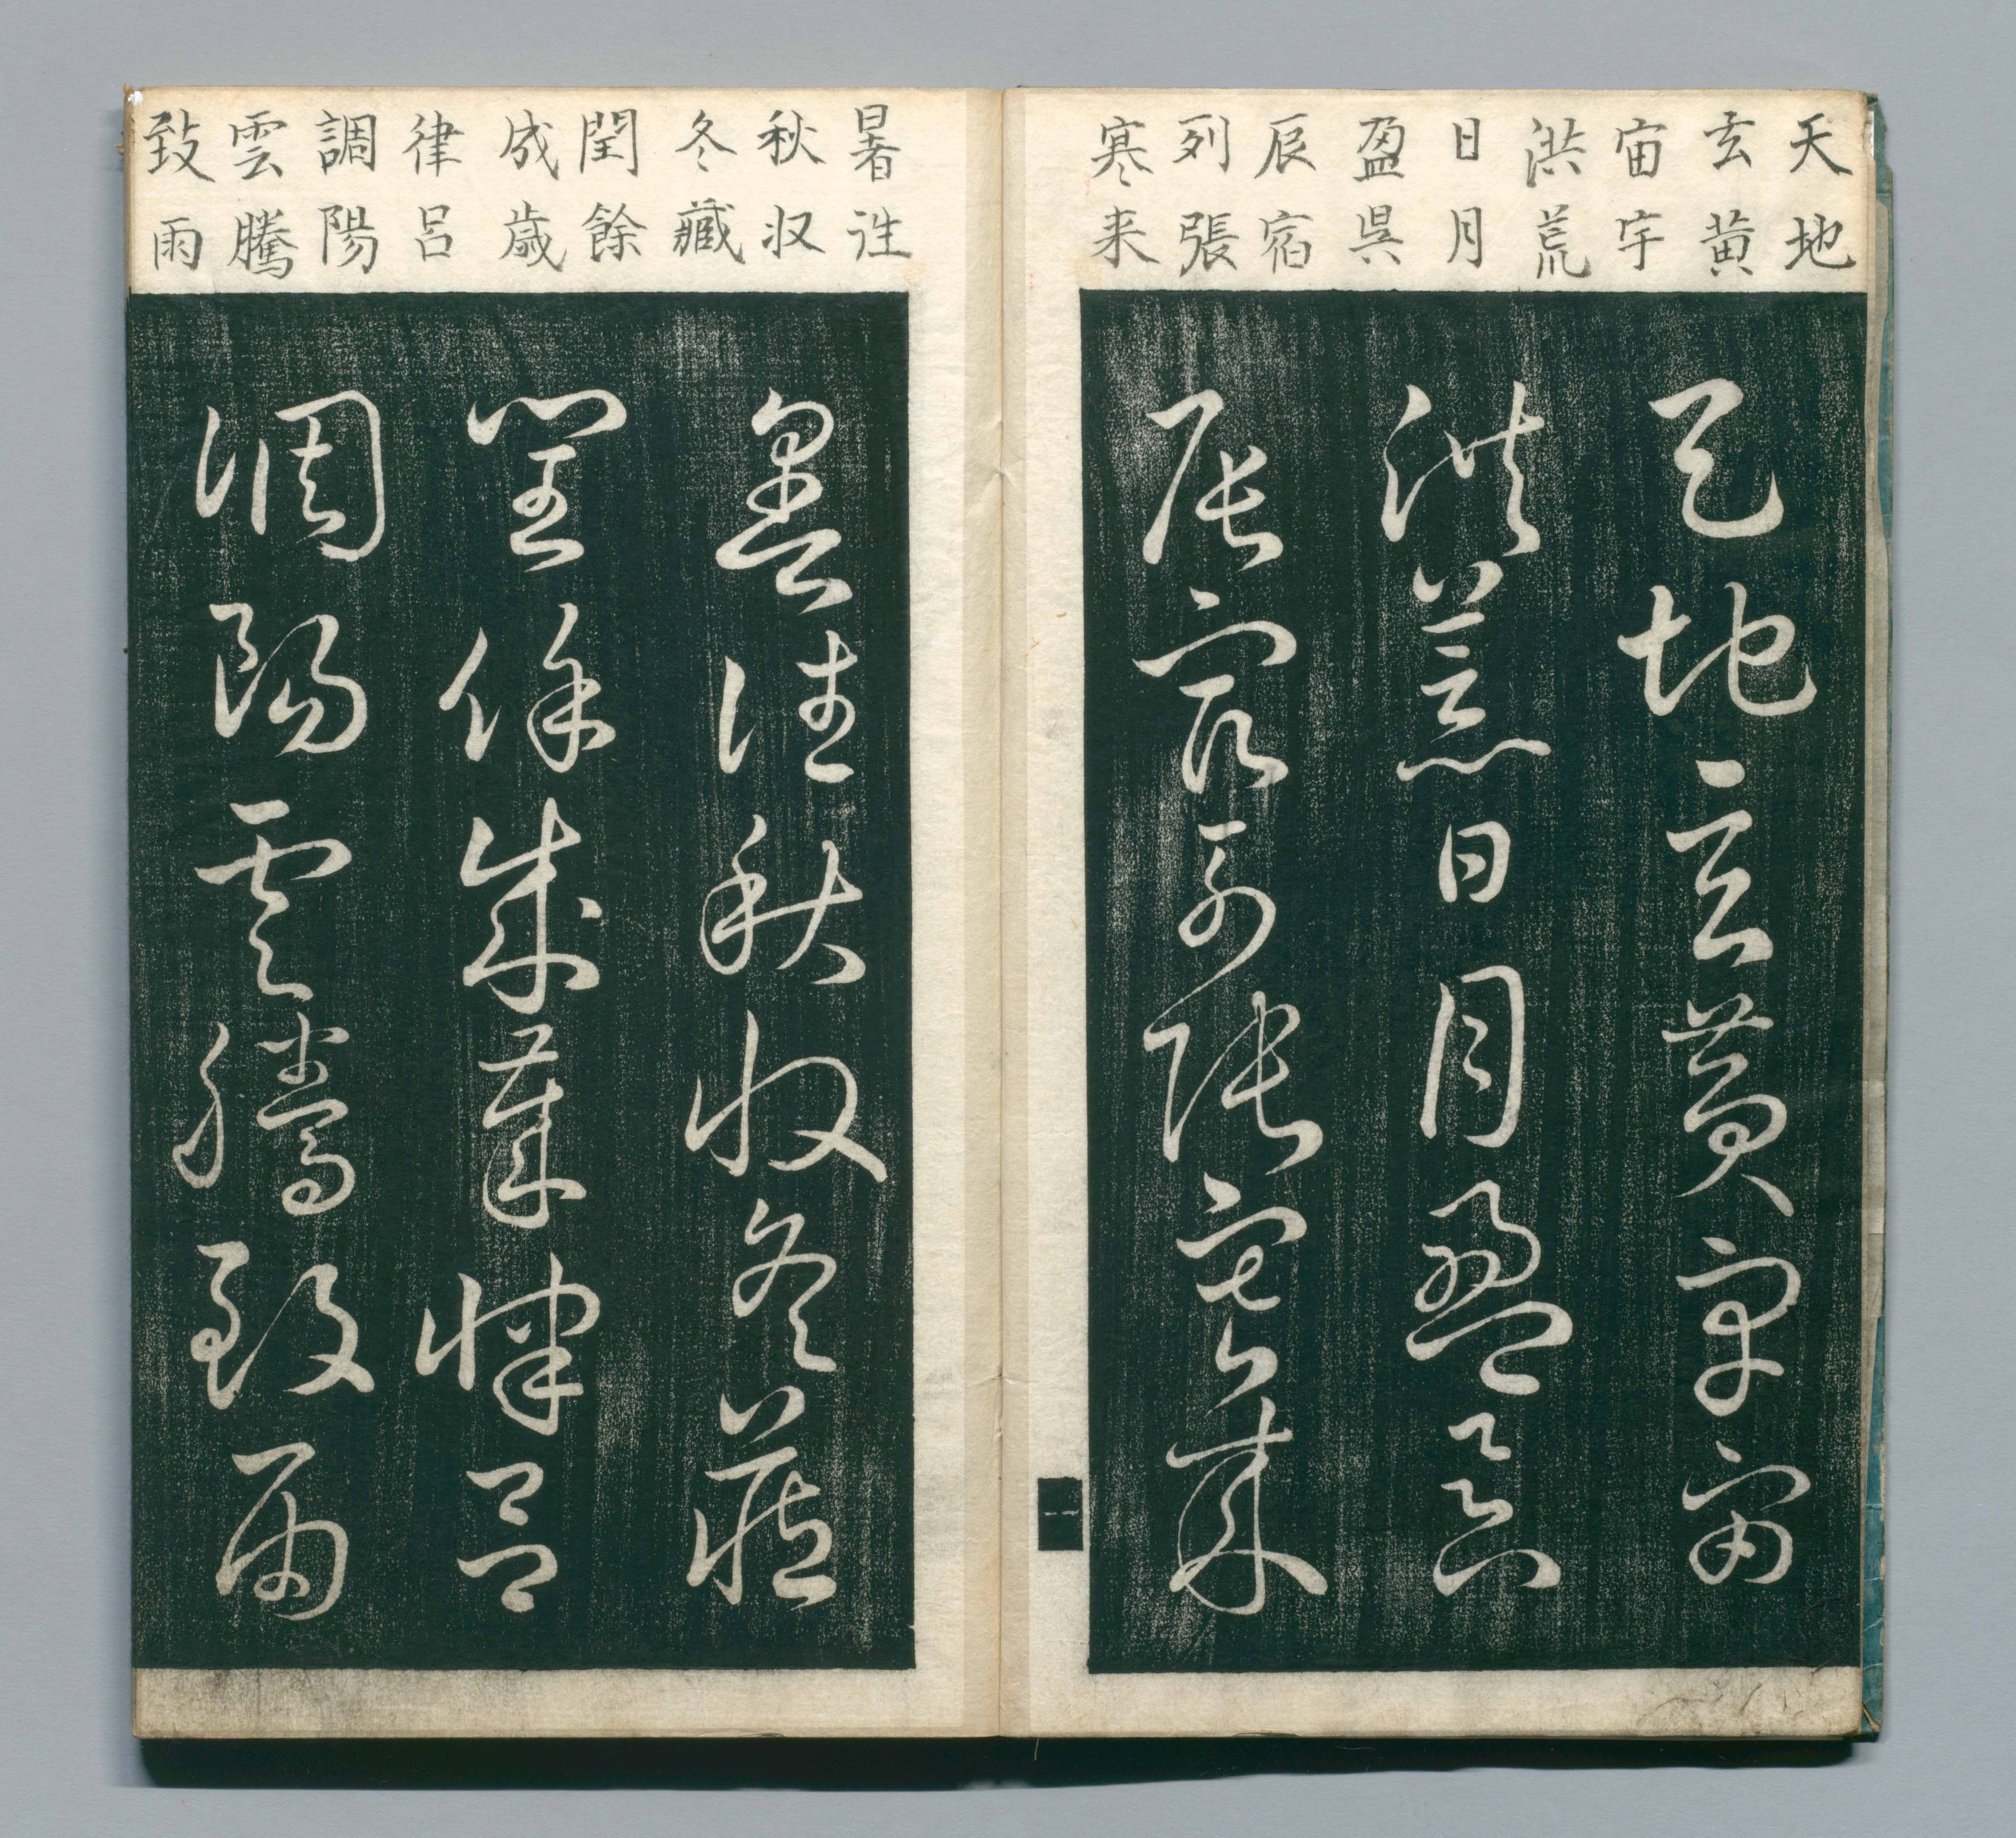 天地
玄黄
宙宇
洪荒
日月
盈吳
辰宿
列張
寒来
天地玄黄宇宙
洪荒日月盈昃
辰宿列張寒来
一
暑往
秋収
冬藏
閏餘
成歳
律呂
調陽
雲騰
致雨
暑往秋收冬藏
閏餘成歲律呂
調陽雲騰致雨